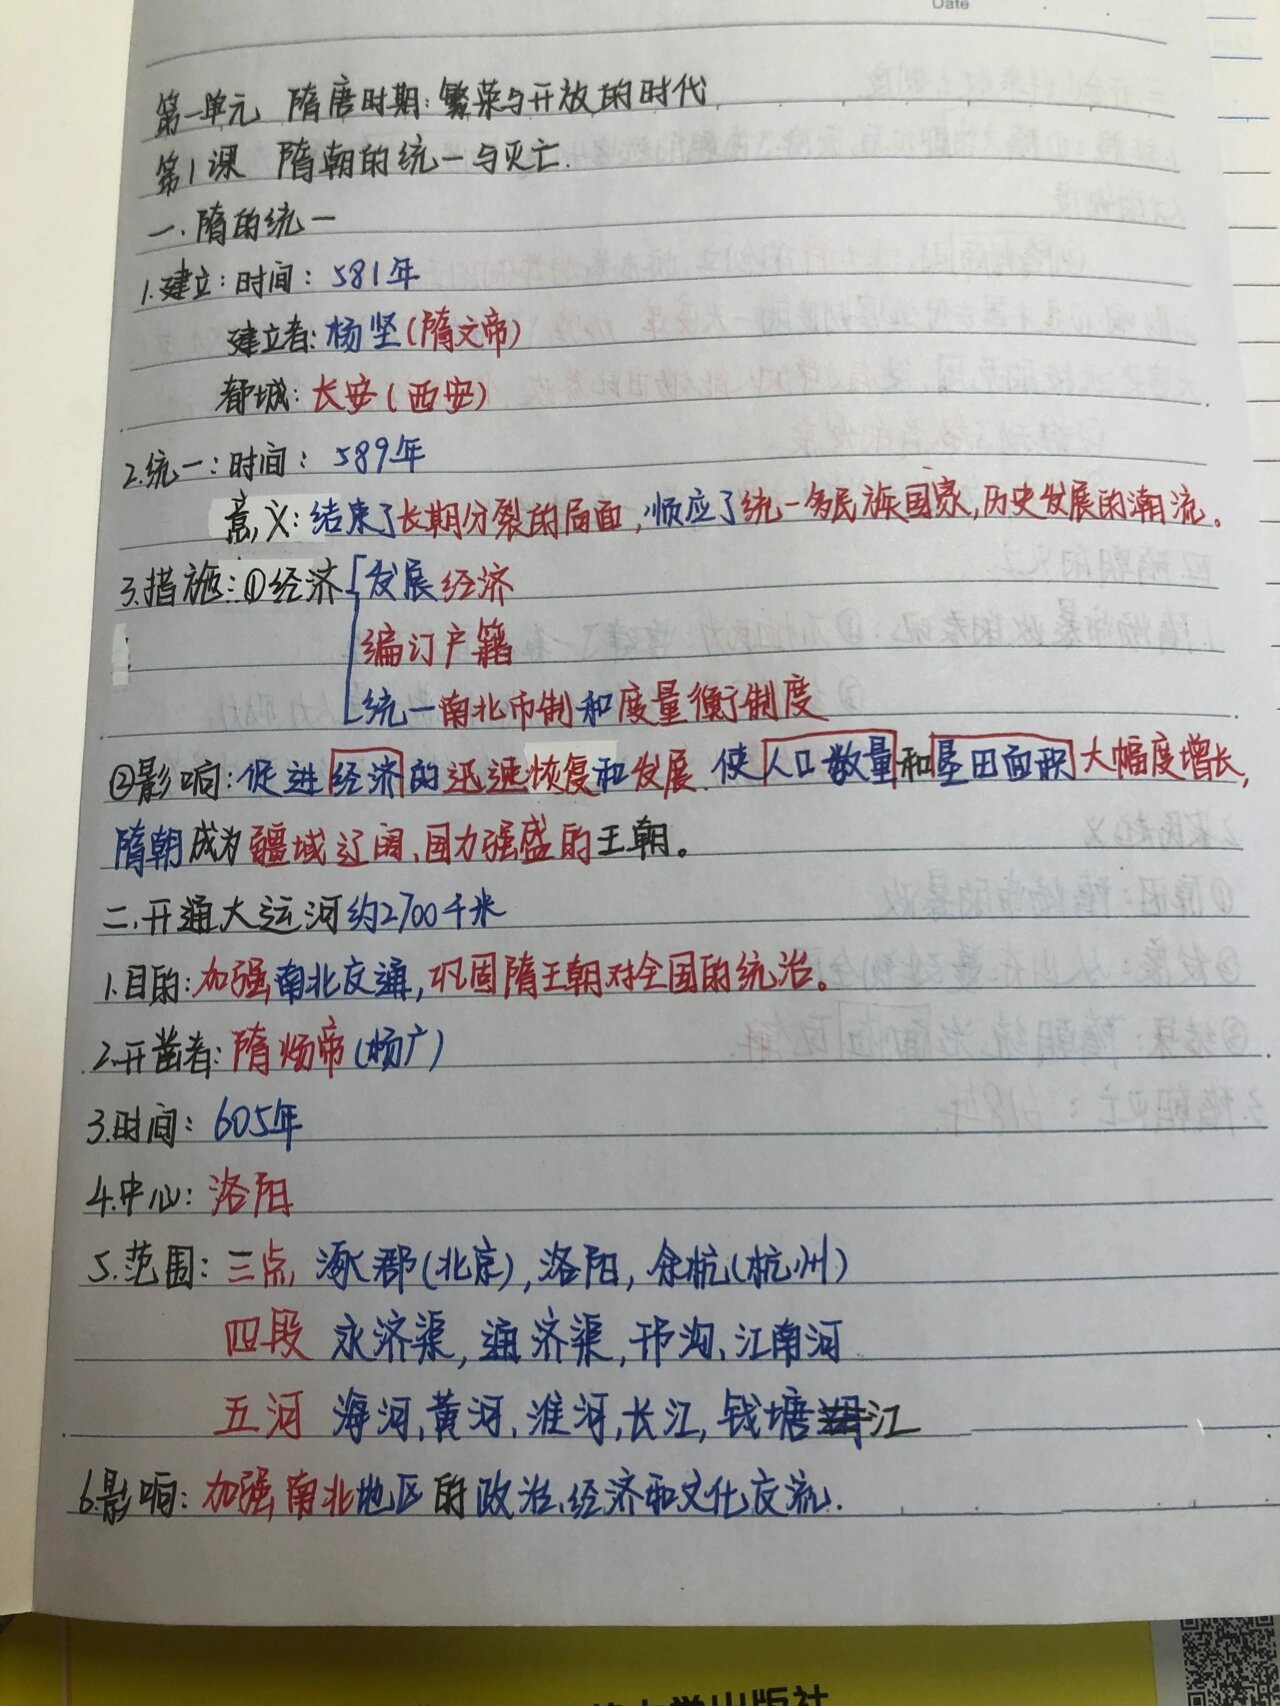 Date
第一单元 隋唐时期:繁荣与开放的时代
第1课 隋朝的统一与灭亡.
一.隋的统一
1.建立:时间:581年
建立者:杨坚(隋文帝)
都城:长安(西安)
2.统一:时间:589年
意义:结束了长期分裂的局面,顺应了统一多民族国家,历史发展的潮流。
3.措施:①经济 发展经济
编订户籍
统一南北币制和度量衡制度
②影响:促进经济的迅速恢复和发展.使人口数量和垦田面积大幅度增长,
隋朝成为疆域辽阔、国力强盛的王朝。
二.开通大运河约2700千米
1.目的:加强南北交通,巩固隋王朝对全国的统治。
2.开凿者:隋炀帝(杨广)
3.时间:605年
4.中心:洛阳
5.范围:三点,涿郡(北京),洛阳,余杭(杭州)
四段 永济渠,通济渠,邗沟、江南河
五河 海河,黄河、淮河,长江,钱塘江
6.影响:加强南北地区的政治、经济和文化交流.
大学出版社